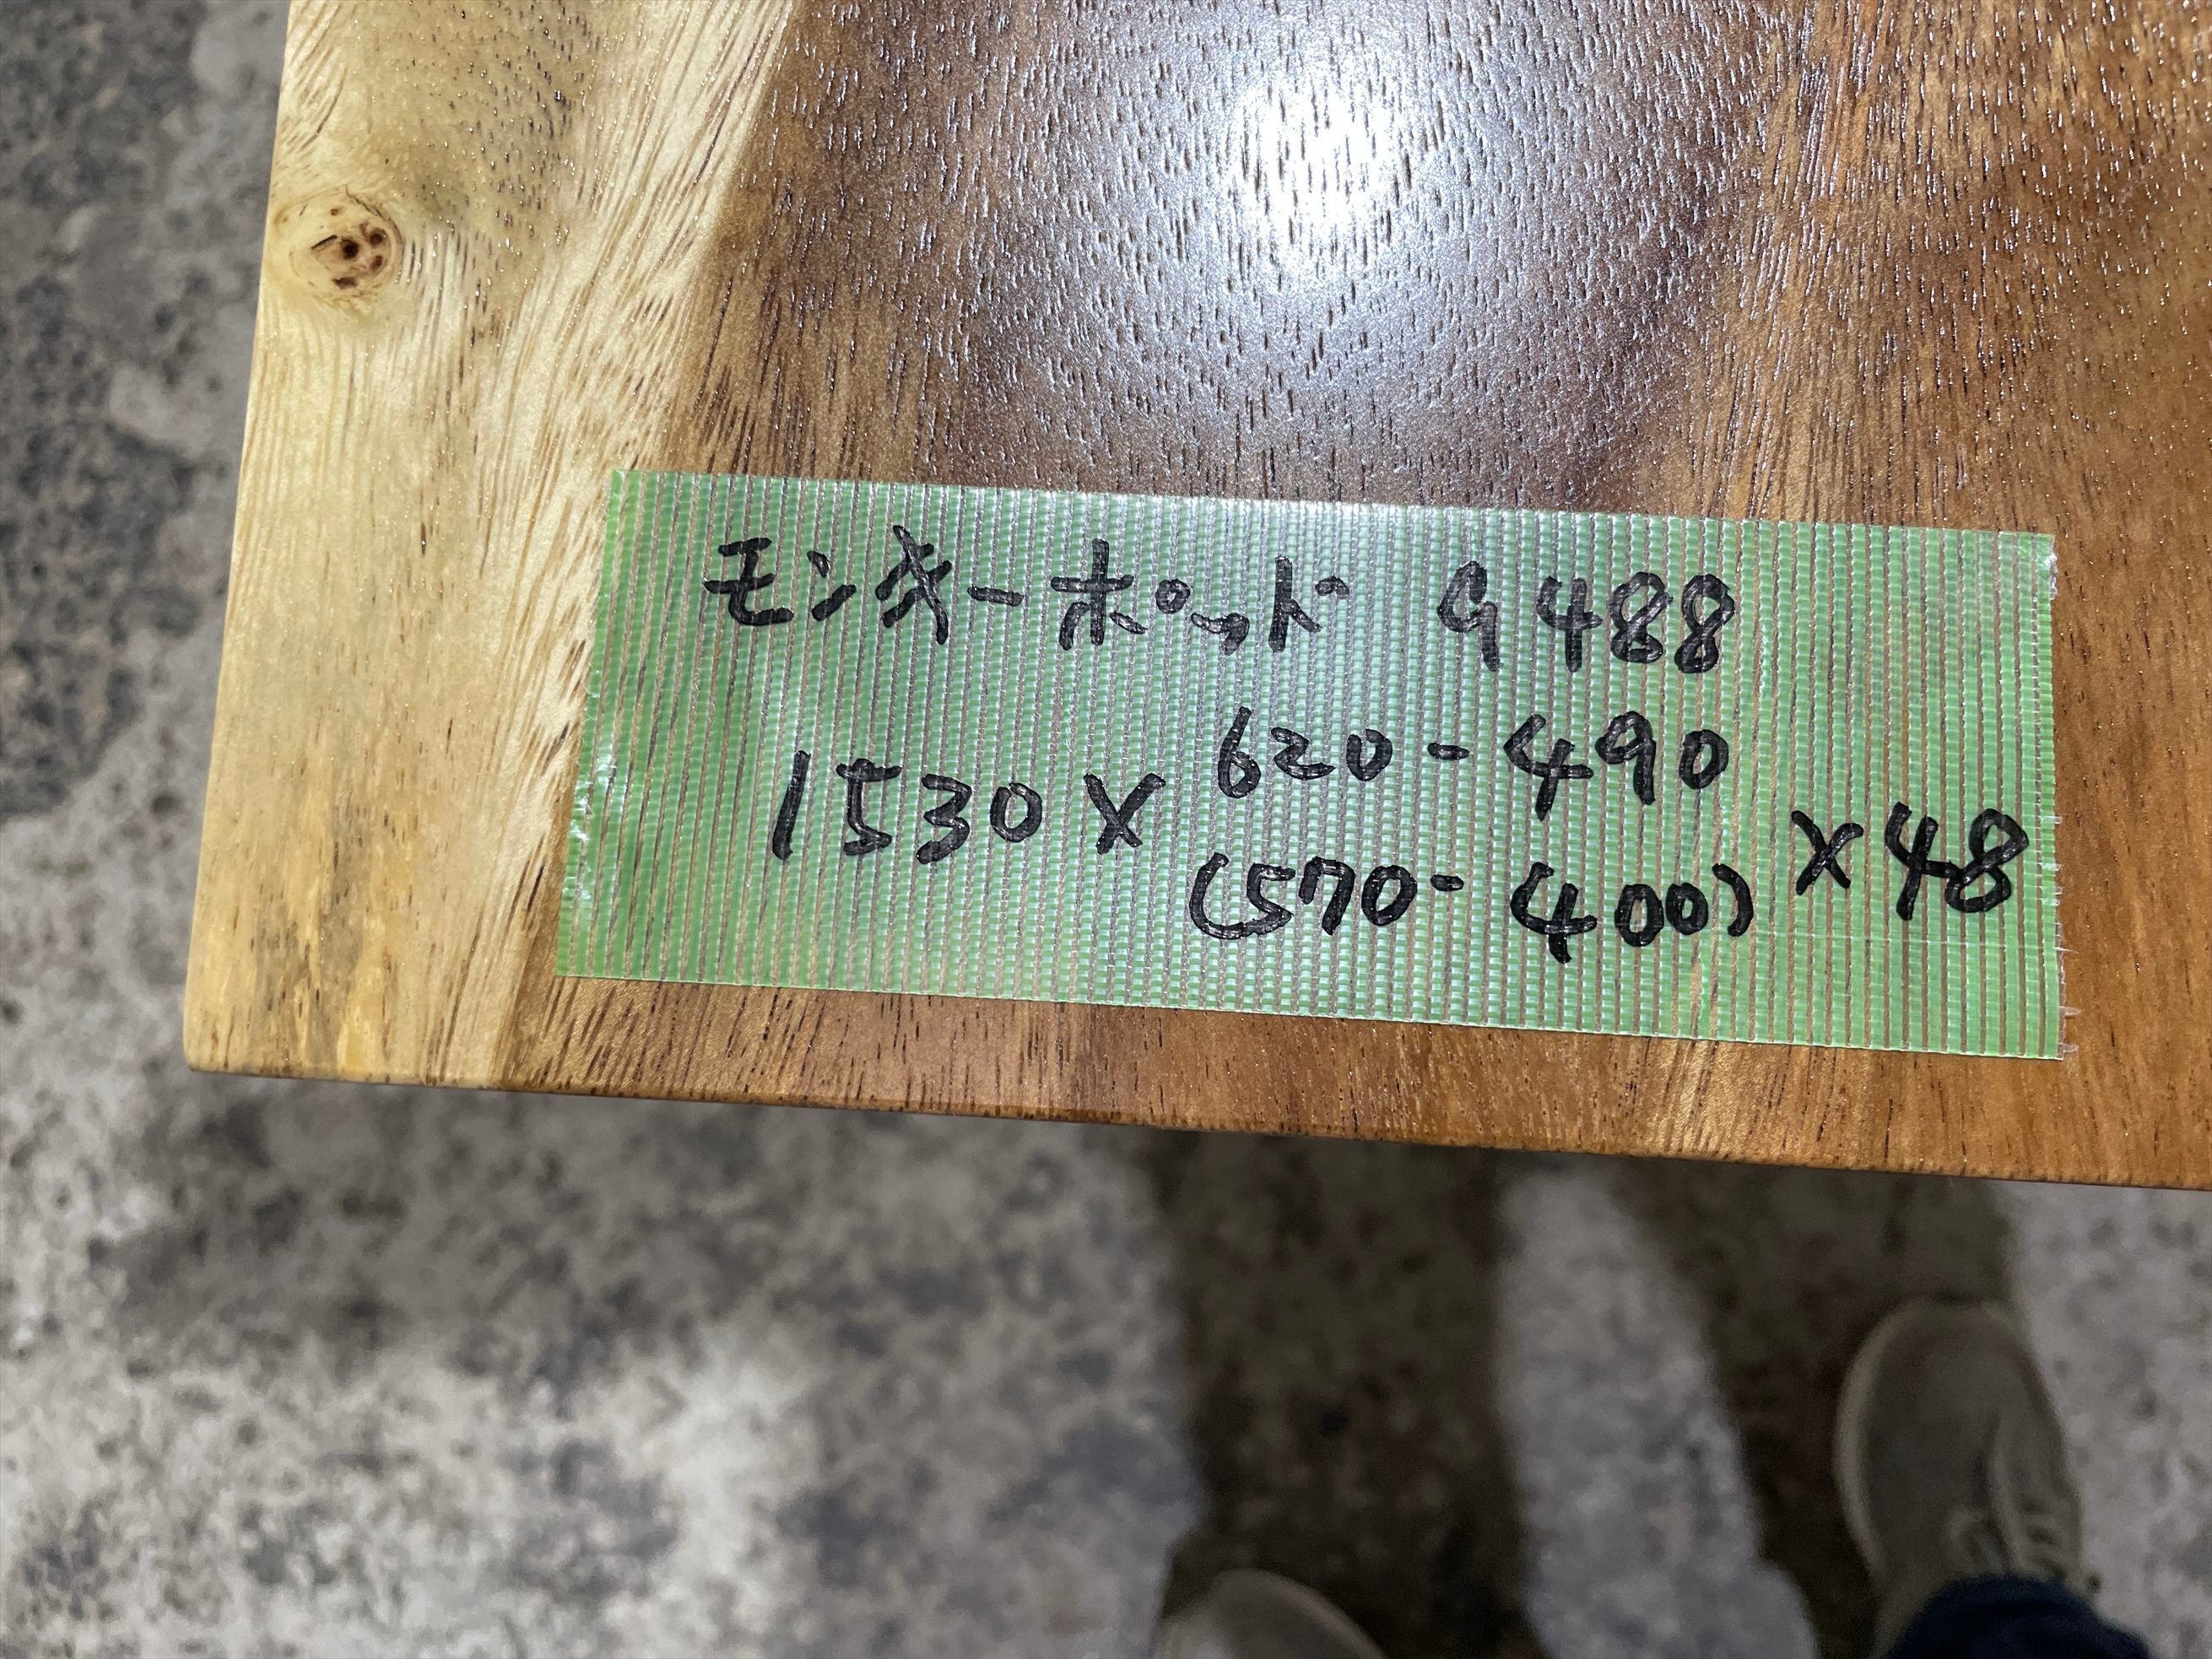 モンキーポッド 9488
1530×620-490
(570-400)×48